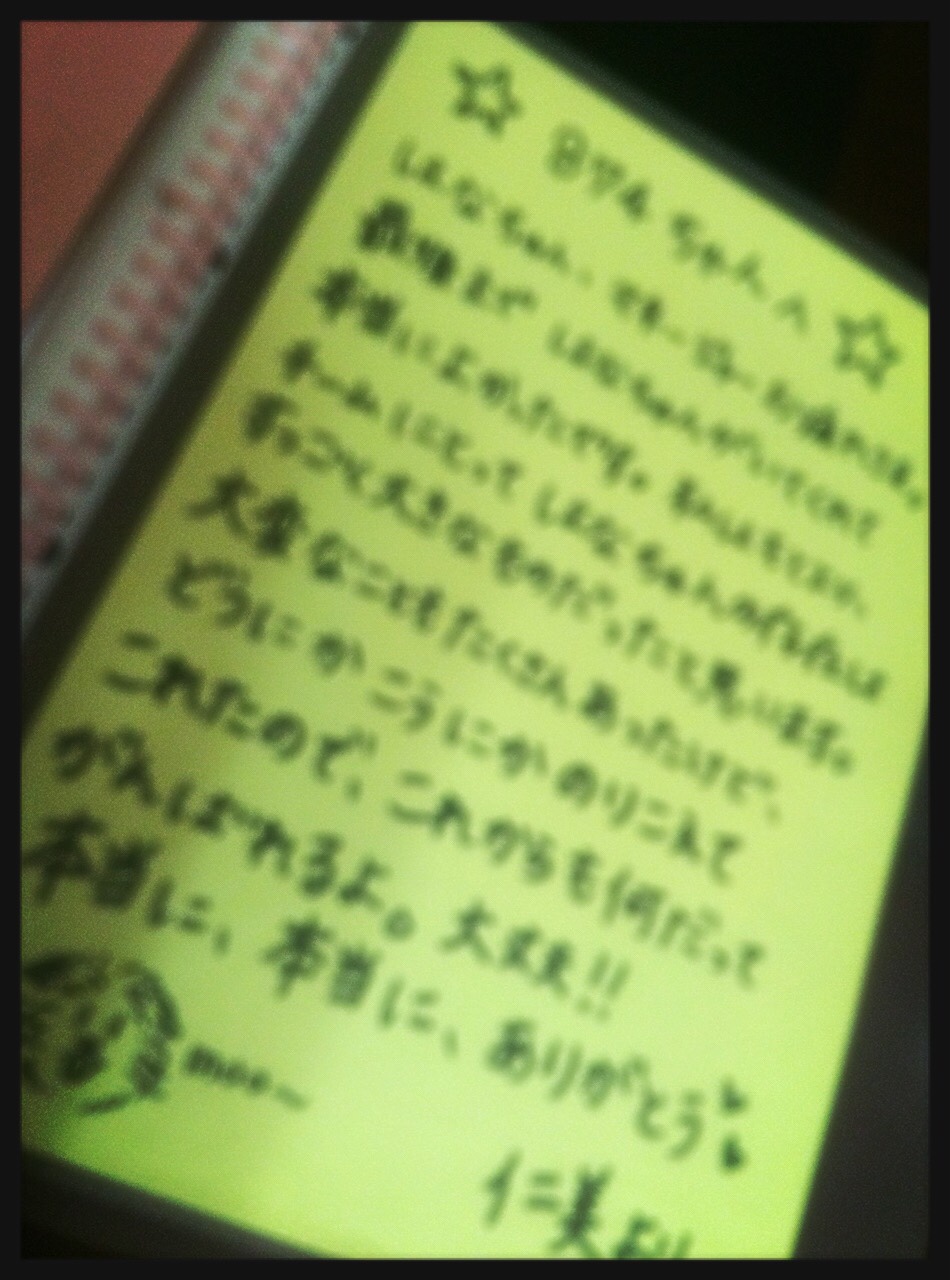 ☆ 874 ちゃんへ ☆
しはなちゃん、マネージャーお疲れさま。
最後まで しはなちゃんがいてくれて
本当によかったです。私はもちろん、
チームにとって しはなちゃんの存在は
すっごく大きなものだったと思います。
大変なこともたくさんあったけど、
どうにかこうにかのりこえて
これたので、これからも何だって
がんばれるよ。大丈夫!!
本当に、本当に、ありがとう
moo~
仁美